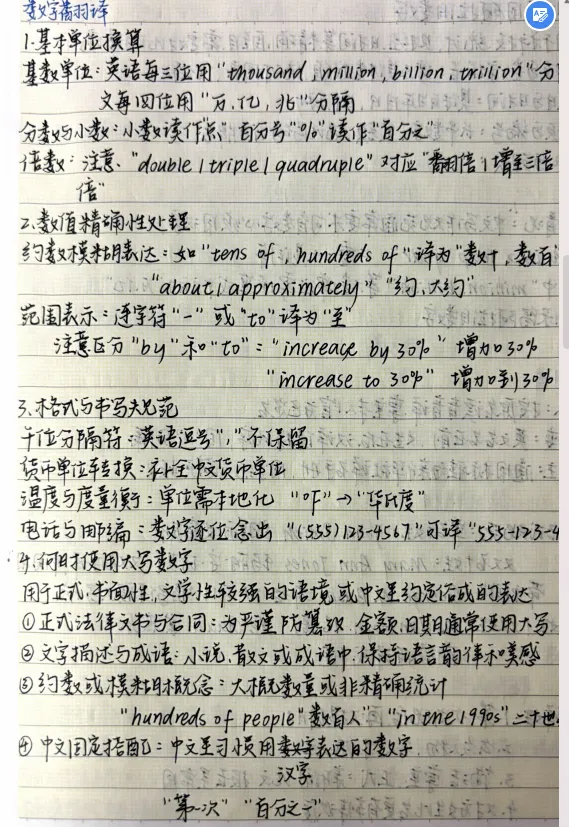 数字翻译
1.基本单位换算
基数单位:英语每三位用"thousand, million, billion, trillion"分
文每四位用"万、亿,兆"分隔
分数与小数:小数读作"点" 百分号"%"读作"百分之"
倍数:注意、"double / triple / quadruple" 对应"翻倍 / 增至三倍
倍"
2.数值精确性处理
约数模糊表达:如"tens of, hundreds of"译为"数十, 数百
"about / approximately" "约、大约"
范围表示:连字符"-"或"to"译为"至"
注意区分"by"和"to":"increace by 30%" 增加30%
"increase to 30%" 增加到30%
3.格式与书写规范
千位分隔符:英语逗号","不保留
货币单位转换:补全中文货币单位
温度与度量衡:单位需本地化 "°F"→"华氏度"
电话与邮编:数字逐位念出"(555)123-4567"可译"555-123-4
4.何时使用大写数字
用于正式、书面性、文学性较强的语境或中文里约定俗成的表达
①正式法律文书与合同:为严谨防篡改、金额、日期通常使用大写
②文字描述与成语:小说、散文或成语中、保持语言韵律和美感
③约数或模糊概念:大概数量或非精确统计
"hundreds of people"数百人" "in the 1990s"二十世
④中文固定搭配:中文里习惯用数字表达的数字
汉字
"第一次" "百分之一"